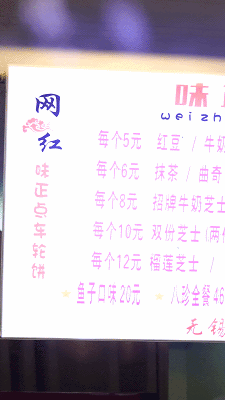 网红
味正点车轮饼
味
weizh
每个5元 红豆 / 牛奶
每个6元 抹茶 / 曲奇
每个8元 招牌牛奶芝士
每个10元 双份芝士(两
每个12元 榴莲芝士 /
鱼子口味 20元 八珍全餐 46
无锡